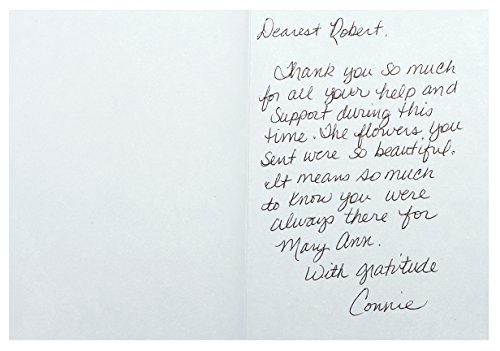 Dearest Robert.
Thank you so much
for all your help and
support during this
time. The flowers you
sent were so beautiful.
It means so much
to know you were
always there for
Mary Ann.
With gratitude
Connie